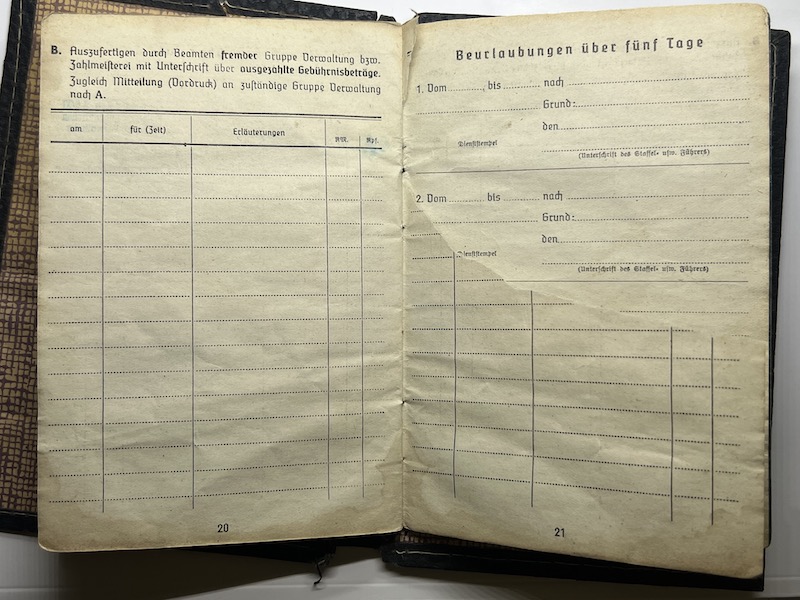 B. Auszufertigen durch Beamten fremder Gruppe Verwaltung bzw.
Zahlmeisterei mit Unterschrift über ausgezahlte Gebührnisbeträge.
Zugleich Mitteilung (Vordruck) an zuständige Gruppe Verwaltung
nach A.
am für (Zeit) Erläuterungen RM. Rpf.
20
Beurlaubungen über fünf Tage
1. Vom bis nach
Grund:
den
Dienststempel
(Unterschrift des Staffel- usw. Führers)
2. Vom bis nach
Grund:
den
Dienststempel
(Unterschrift des Staffel- usw. Führers)
21